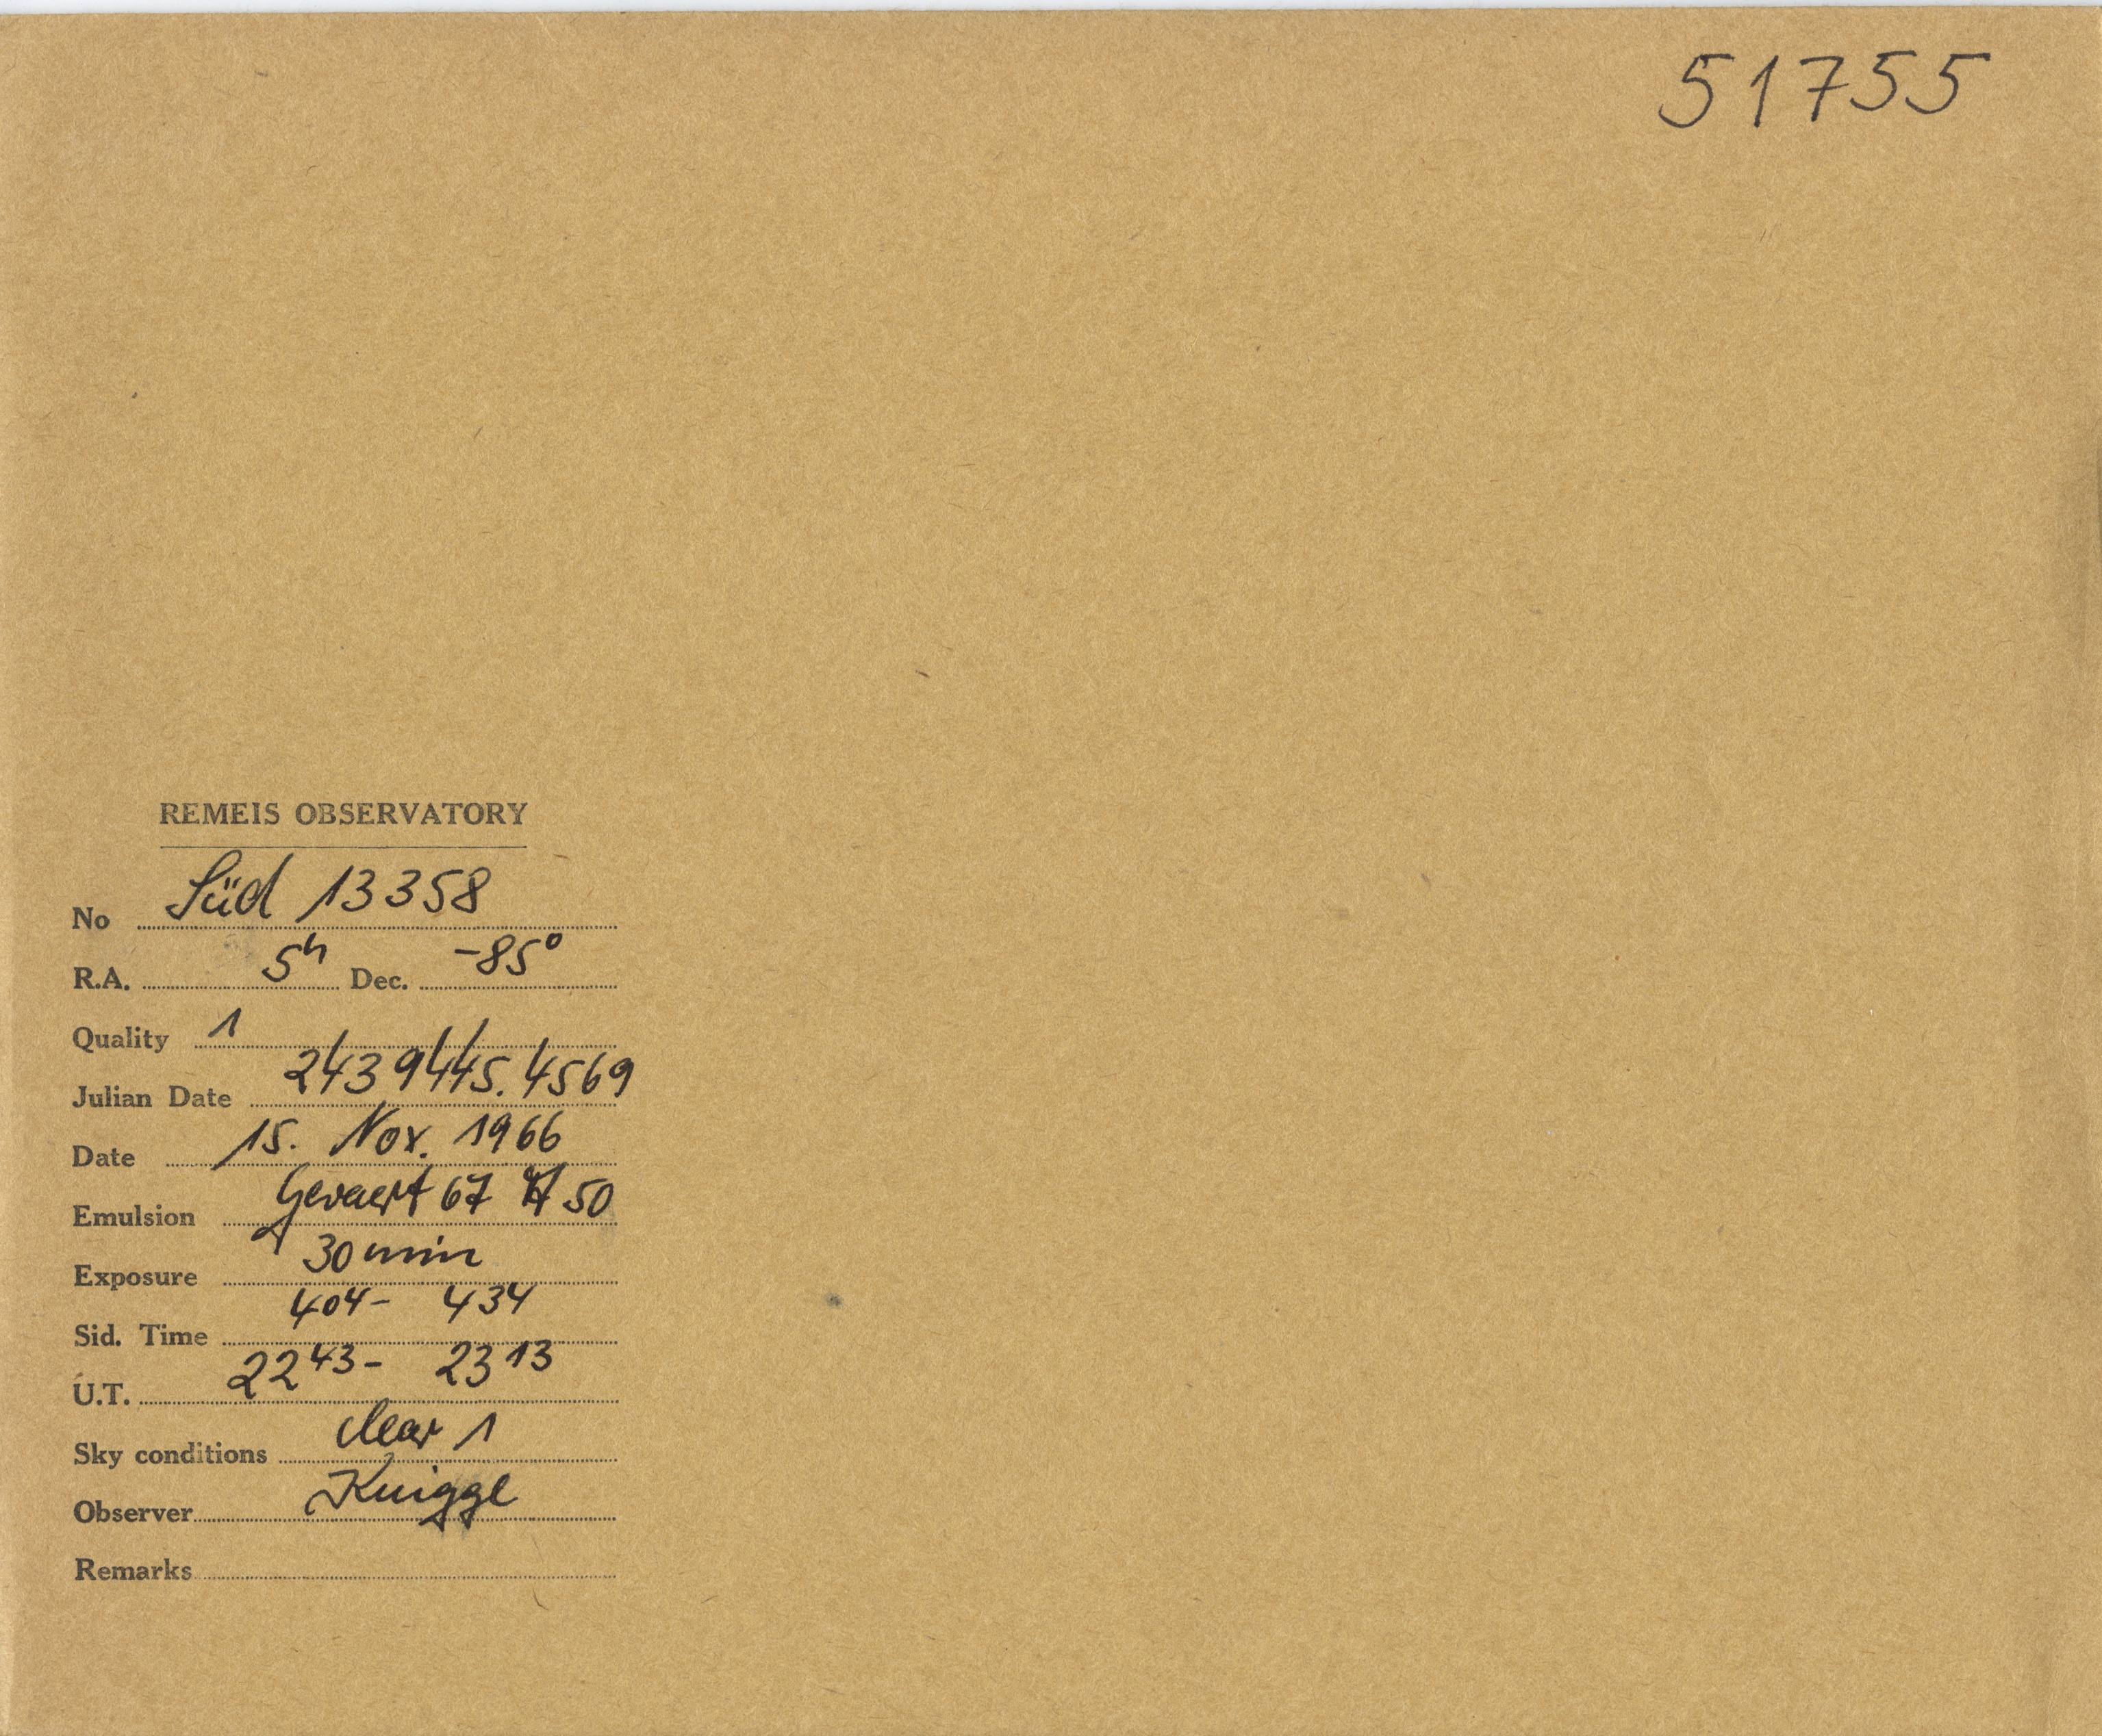 51755
REMEIS OBSERVATORY
No Süd 13358
R.A. 5h Dec. -85°
Quality 1
Julian Date 2439445.4569
Date 15. Nov. 1966
Emulsion Gevaert 67 A 50
Exposure 30 min
Sid. Time 4 04 - 4 34
U.T. 22 43 - 23 13
Sky conditions clear 1
Observer Knigge
Remarks